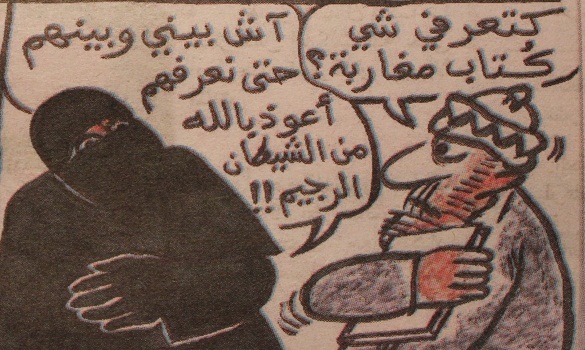 كتعرفي شي
كُتاب مغاربة؟
آش بيني وبينهم
حتى نعرفهم
أعوذ بالله
من الشيطان
الرجيم!!